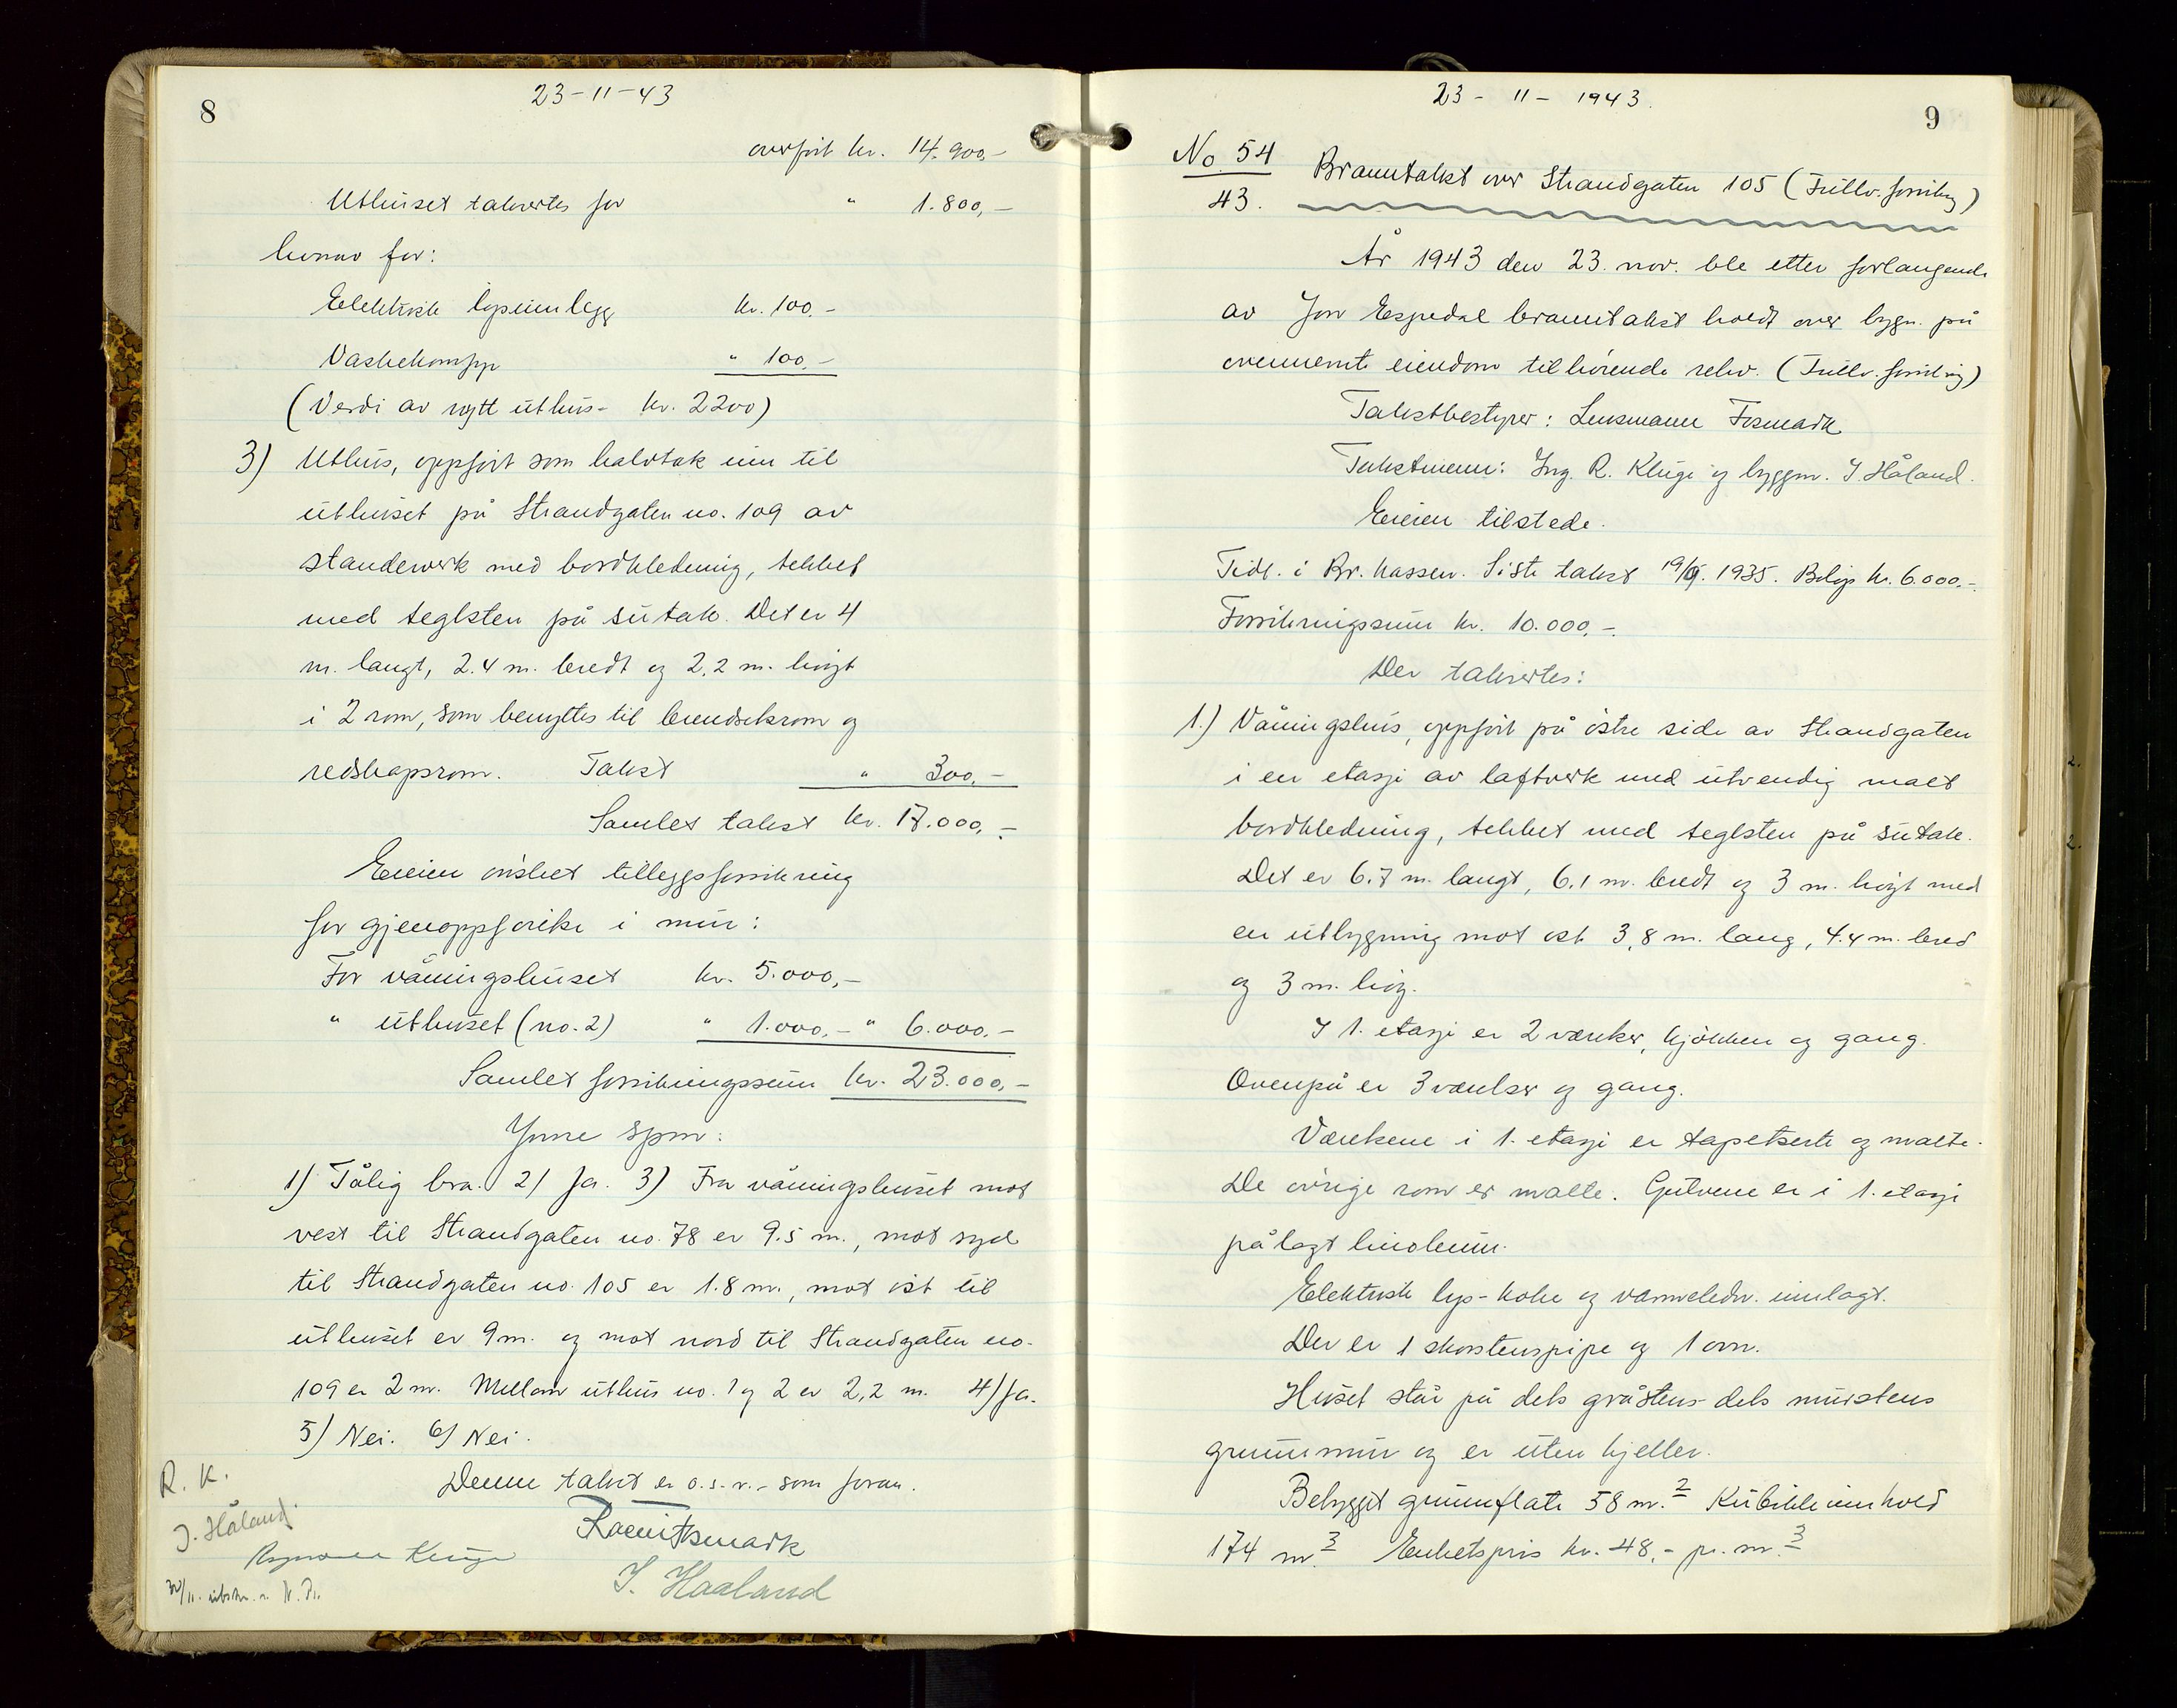 8
23-11-43
overført kr. 14.900,-
Uthuset takseres for " 1.800,-
hvorav for:
Elektrisk lysinnlegg kr. 100,-
Vaskekomfyr " 100,-
(Verdi av nytt uthus- kr. 2200)
3) Uthus, oppført som halvtak inn til
uthuset på Strandgaten no. 109 av
standerverk med bordkledning, tekket
med teglsten på sutak. Det er 4
m. langt, 2.4 m. bredt og 2,2 m. høygt
i 2 rom, som benyttes til brendselsrom og
redskapsrom. Takst " 300,-
Samlet takst kr. 17.000,-
Eieren ønsket tilleggsforsikring
for gjenoppførelse i mur:
For våningshuset kr. 5.000,-
" uthuset (no. 2) " 1.000,- " 6.000.-
Samlet forsikringssum kr. 23.000,-
Ymse spm:
1) Tålig bra. 2) Ja. 3) Fra våningshuset mot
vest til Strandgaten no. 78 er 9.5 m., mot syd
til Strandgaten no. 105 er 1.8 m., mot øst til
uthuset er 9 m. og mot nord til Strandgaten no.
109 er 2 m. Mellom uthus no. 1 og 2 er 2,2 m. 4) Ja.
5) Nei. 6) Nei.
Denne takst er o.s.v.- som foran.
R. K.
J. Håland.
Kluge
J. Haaland
9
23 - 11 - 1943.
No 54
43.
Branntakst over Strandgaten 105 (Fullv. forsikring)
År 1943 den 23. nov. ble etter forlangende
av Jon Espedal branntakst holdt over bygn. på
ovennemte eiendom tilhørende rekv. (Fullv. forsikring)
Takstbestyrer: Lensmann Fosmark
Takstmenn: Ing. R. Kluge og byggm. J. Håland.
Eieren tilstede.
Tidl. i Br. kassen. Siste takst 19/9. 1935. Beløp kr. 6.000,-.
Forsikringssum kr. 10.000,-.
Der takseres:
1.) Våningshus, oppført på østre side av Strandgaten
i en etasje av laftverk med utvendig malt
bordkledning, tekket med teglsten på sutak.
Det er 6.7 m. langt, 6.1 m. bredt og 3 m. høygt med
en utbygning mot øst 3,8 m. lang, 4.4 m. bred
og 3 m. høg.
I 1. etasje er 2 værelser, kjøkken og gang.
Ovenpå er 3 værelser og gang.
Værelsene i 1. etasje er tapetserte og malte.
De øvrige rom er malte. Gulvene er i 1. etasje
pålagt linoleum.
Elektrisk lys- koke og vannledn. innlagt.
Der er 1 skorstenspipe og 1 ovn.
Huset står på dels gråstens- dels murstens
grunnmur og er uten kjeller.
Bebygget grunnflate 58 m.2 Kubikkinnhold
174 m.3 Enhetspris kr. 48,- pr. m.3